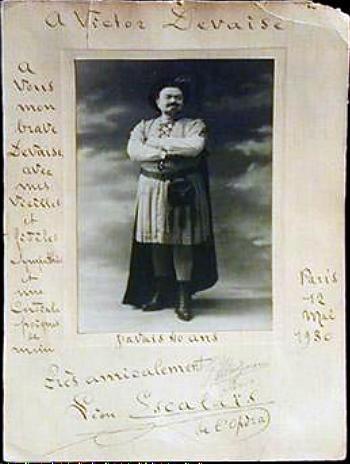 A Victor Devaise
A
Vous
mon
brave
Devaise
avec
mes
Vieilles
et
fidèles
Sympathies
et
une
Cordiale
poignée
de
main
j'avais 40 ans
Paris
12
Mai
1930
Très amicalement
Léon Escalaïs
de l'Opéra